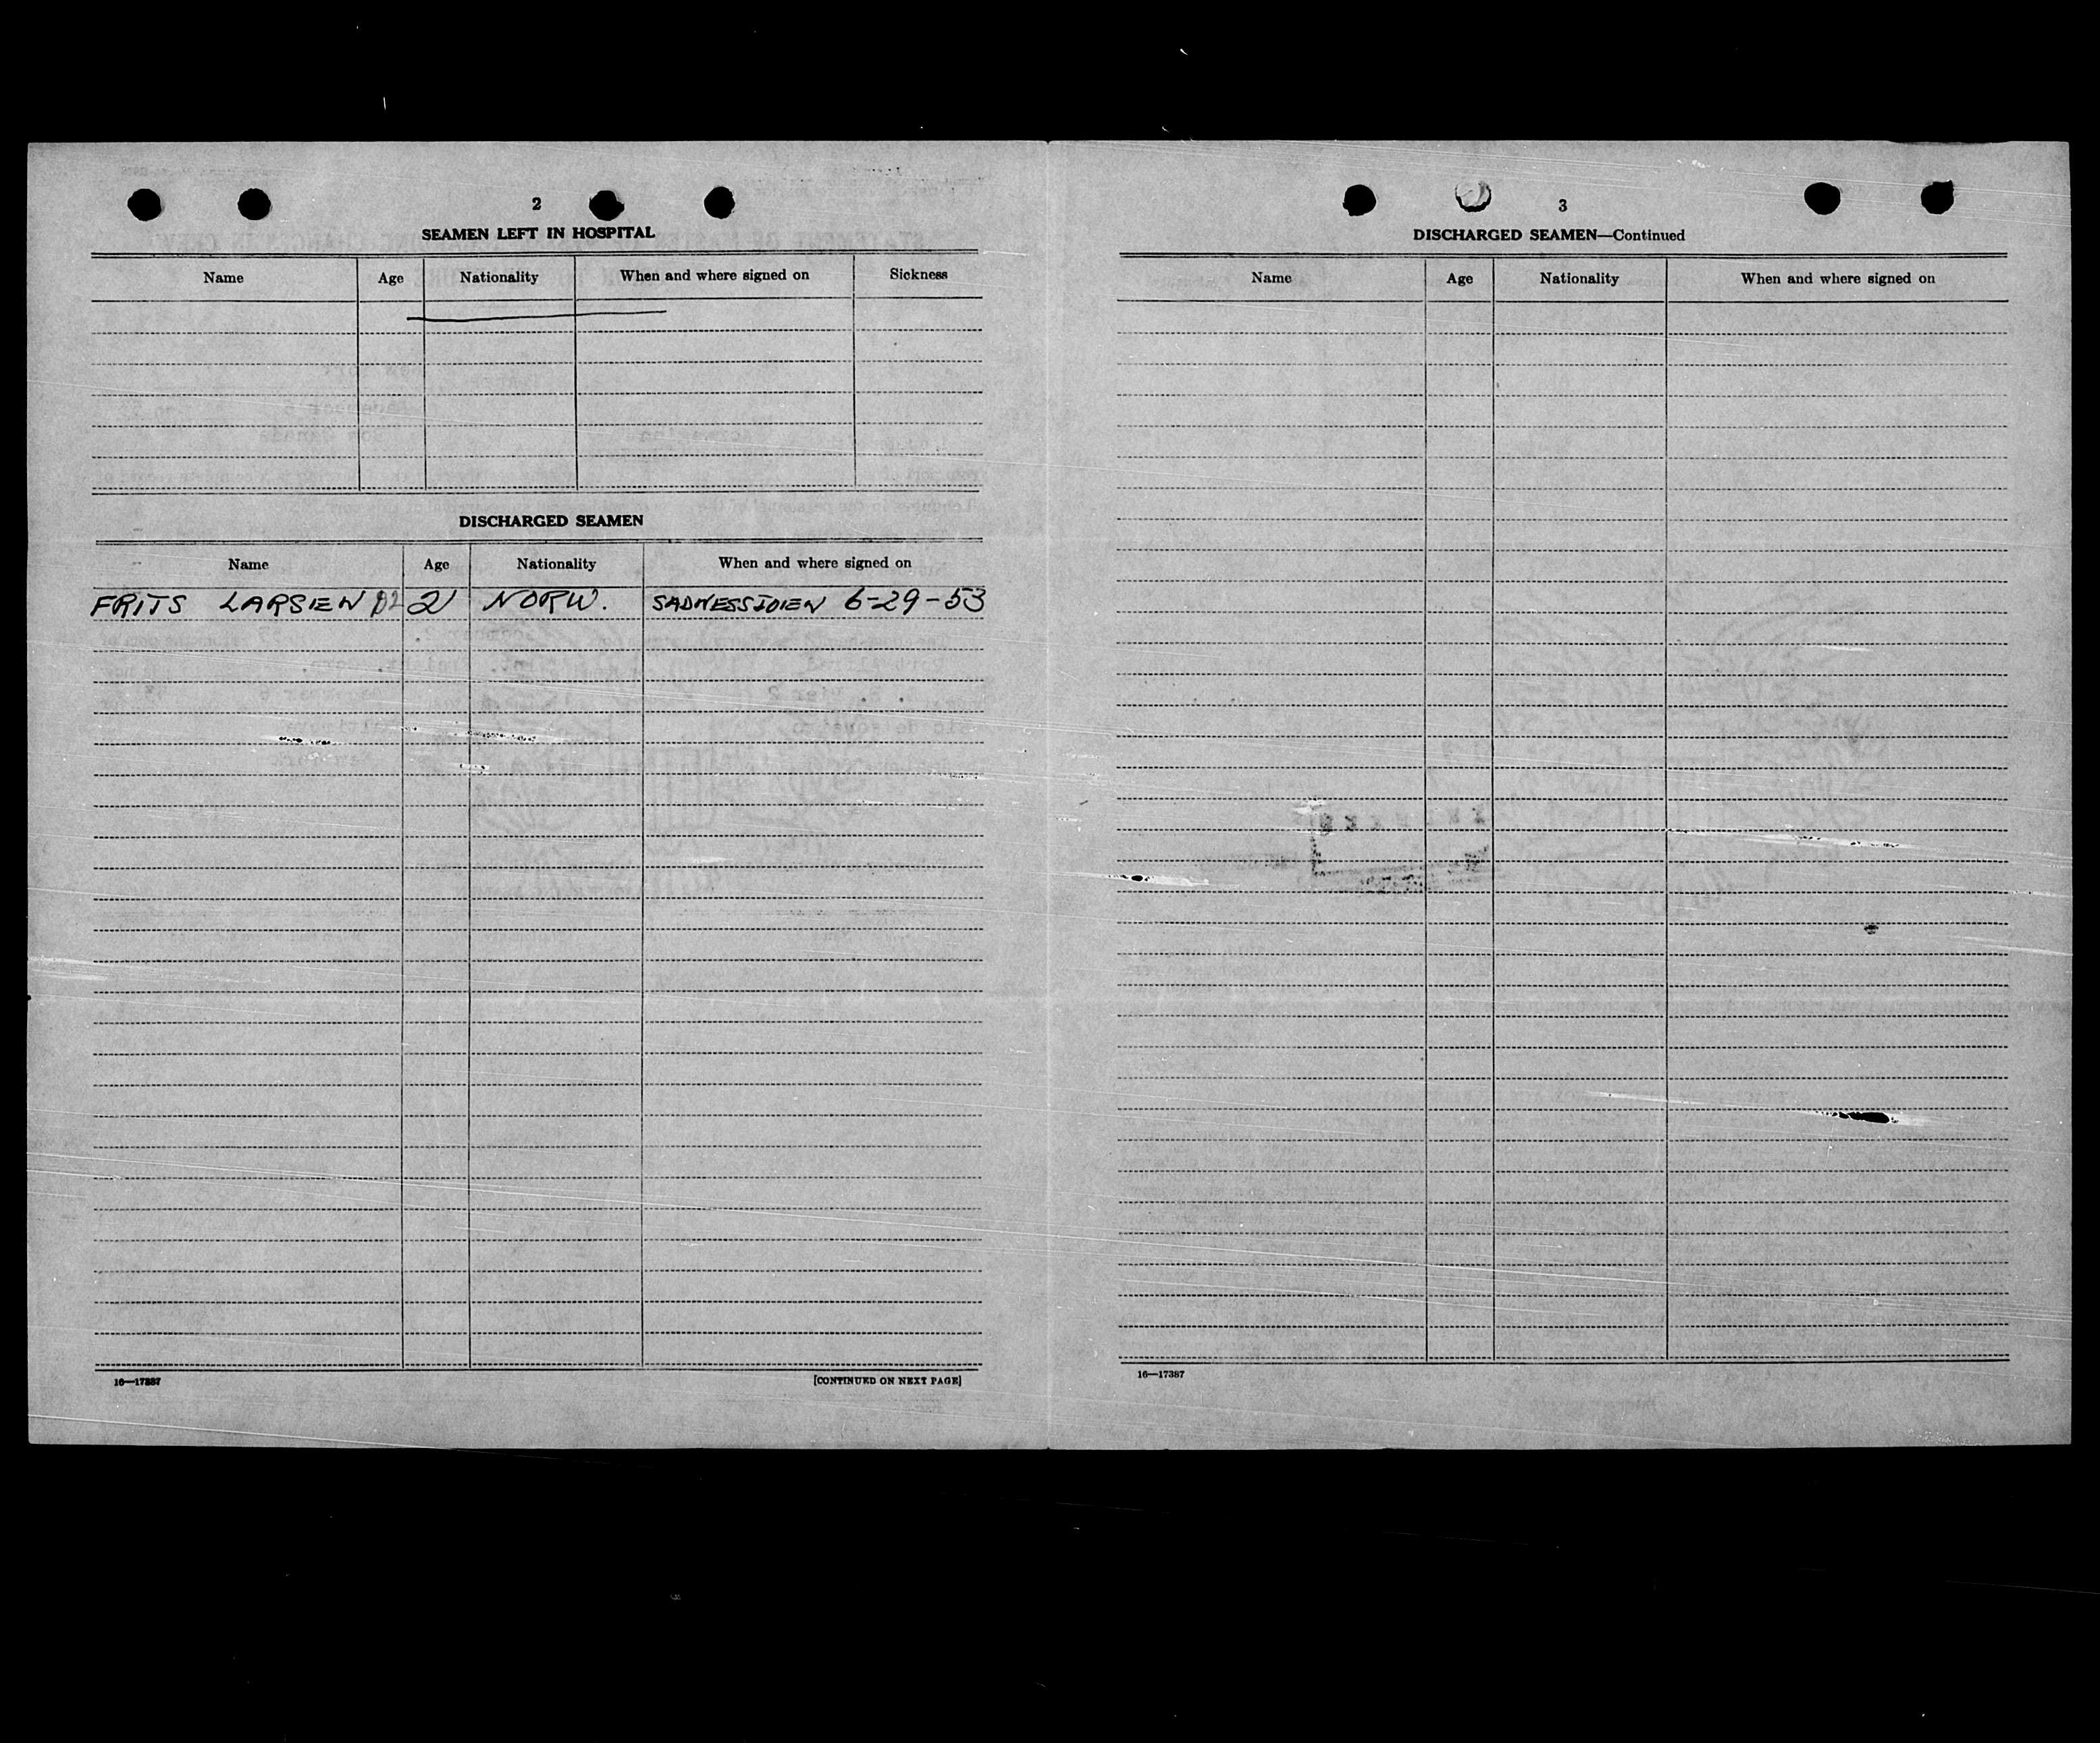 2
SEAMEN LEFT IN HOSPITAL
Name Age Nationality When and where signed on Sickness
DISCHARGED SEAMEN
Name Age Nationality When and where signed on
FRITS LARSEN 21 NORW. 6-29-53
16—17387
[CONTINUED ON NEXT PAGE]
3
DISCHARGED SEAMEN—Continued
Name Age Nationality When and where signed on
16—17387